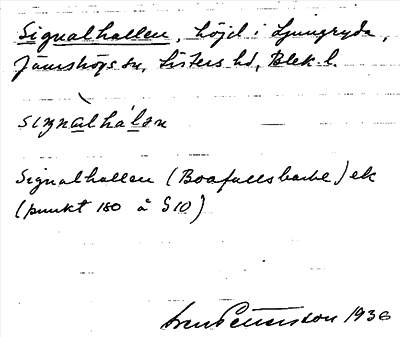 Signalhallen, höjd i Ljungryda,
Jämshögs sn, Listers hd, Blek. l.
siŋnàlhálən
Signalhallen (Boafallsbacke) ek
(punkt 180 å G10)
Sven Pettersson 1936